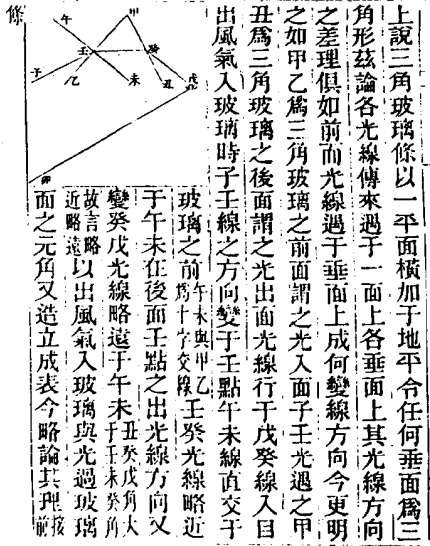 上說三角玻璃條以一平面橫加于地平令任何垂面爲三
角形茲論各光線傳來過于一面上各垂面上其光線方向
之差理俱如前而光線過于垂面上成何變線方向今更明
之如甲乙爲三角玻璃之前面謂之光入面子壬光遇之甲
丑爲三角玻璃之後面謂之光出面光線行于戊癸線入目
出風氣入玻璃時子壬線之方向變于壬點午未線直交于
甲
午
壬
癸
子
乙
未
丑
戊
卯
玻璃之前午未與甲乙爲十字交線壬癸光線略近
于午未在後面壬點之出光線方向又
變癸戊光線略遠于午未丑癸戊角大于壬未癸角
故言略近略遠以出風氣入玻璃與光過玻璃
面之元角又造立成表今略論其理接前
條